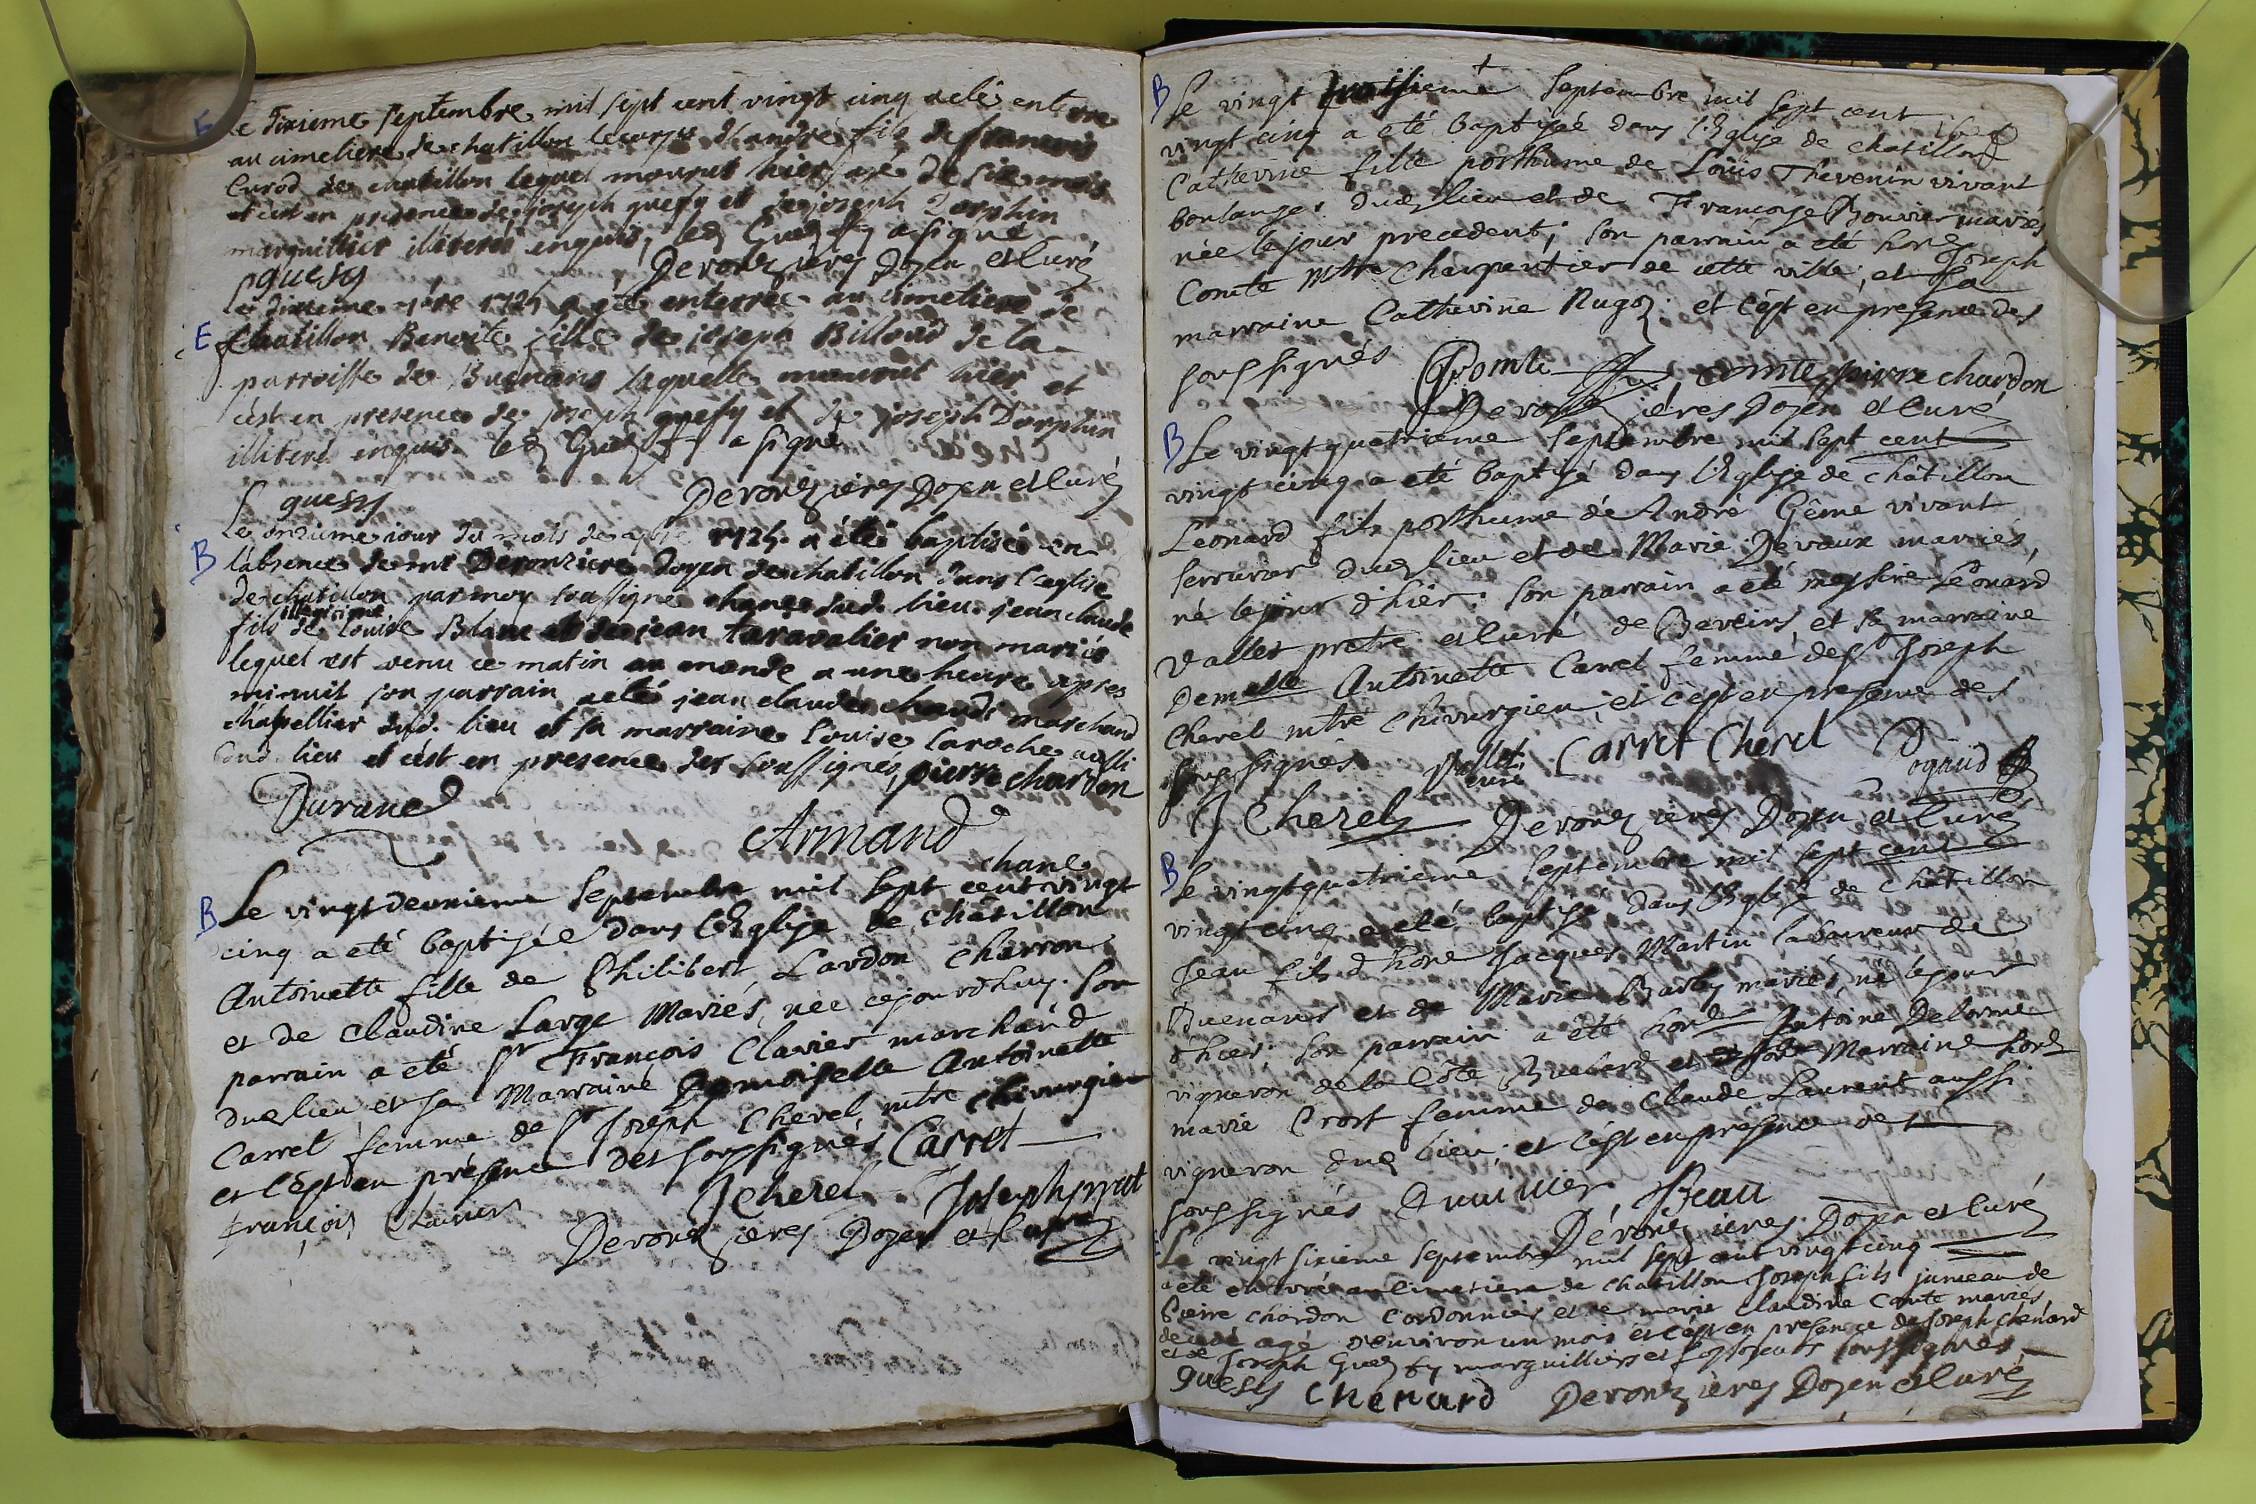 E Le dixieme septembre mil sept cent vingt cinq a eté enterre
au cimetiere de chatillon le corps d'andré fils de francois
Curod de chatillon lequel mourut hier agé de six mois
et c'est en presence de joseph guesy et de joseph Dorphin
marguillier illiteré enquis, led Guesy a signé
J guesy Deronzieres Doyen et Curé
Le dixieme 7bre 1725 a été enterrée au cimetiere de
E chatillon Benoite fille de joseph Billoud de la
parroisse de Buenans laquelle mourut hier et
c'est en presence de joseph guesy et de joseph Dorphin
illiteré enquis led Guesy a signé
J guesy Deronzieres Doyen et Curé
Le onzieme jour du mois de 7bre 1725 a été baptisé en
B l'absence de mr Deronziere doyen de chatillon dans l'eglise
de chatillon par moy soussigné chane dud. lieu jean claude
fils illegitime de Louise Blanc et de jean taravalier non mariés
lequel est venu ce matin au monde a une heure apres
minuit son parrain a eté jean claude chande marchand
chapellier dud. lieu et sa marraine Louise Laroche aussi
dud. lieu et c'est en presence des soussignés, pierre chardon
Durand
Armand
chane
B Le vingt deuxieme Septembre mil sept cent vingt
cinq a eté baptisée dans l'Eglise de Châtillon
Antoinette fille de Philibert Lardon Charron
et de Claudine Large Mariés, née cejourdhuy. Son
parrain a eté Sr François Clavier marchand
dud lieu et sa Marraine Demoiselle Antoinette
Carret femme de Sr Joseph Cherel mtre chirurgien
et c'est en présence des soussignés Carret
François Clavier J Cherel Joseph
Deronzieres Doyen et Curé
B Le vingt troisieme Septembre mil sept cent
vingt cinq a eté baptisée dans l'Eglise de chatillon
Catherine fille posthume de Loüis Thevenin vivant
boulanger dud lieu et de Francoise Bouvier mariés
née le jour precedent; son parrain a été honE Joseph
Comte mtre Charpentier de cette ville; et sa
marraine Catherine Rugoz. et c'est en presence des
soussignés comte pierre chardon
Deronzieres Doyen et Curé
B Le vingt quatrieme Septembre mil sept cent
vingt cinq a eté baptisé dans l'Eglise de châtillon
Léonard fils posthume de André Gême vivant
serrurier dud lieu et de Marie Devaux mariés,
né le jour d'hier: son parrain a eté messire Léonard
Vallet pretre et curé de Baneins et sa marraine
Demelle Antoinette Carret femme de Sr Joseph
Cherel mtre chirurgien; et c'est en presence des
soussignés Vallet curé Carret Cherel Pogaud
J Cherel Deronzieres Doyen et Curé
B Le vingt quatrieme Septembre mil sept cent
vingt cinq a eté baptisé dans l'Eglise de châtillon
Jean fils d'hone Jacques Martin laboureur de
Buenans et de Marie Barby mariés, né le jour
d'hier: Son parrain a été honE Antoine Delorme
vigneron de la Côte et sa Marraine honE
marie Crost femme de Claude Laurent aussi
vigneron dud lieu; et c'est en présence de
soussignés Beau
Deronzieres Doyen et Curé
Le vingt sixieme septembre mil sept cent vingt cinq
a eté enterré au Cimetiere de chatillon Joseph fils jumeau de
Pierre chardon Cordonnier et de marie claudine Comte mariés
decedé agé d'environ un mois et c'est en presence de Joseph Chenard
et de Joseph Guesy marguilliers et fossoyeurs soussignés
guesy Chenard Deronzieres Doyen et Curé